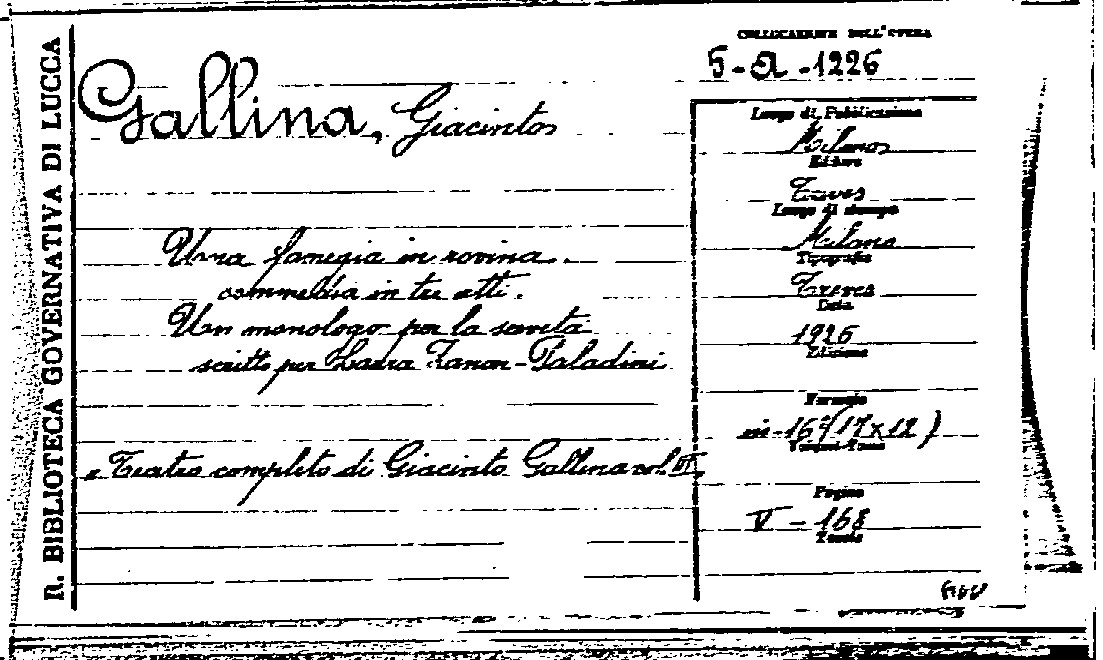 R. BIBLIOTECA GOVERNATIVA DI LUCCA
COLLOCAZIONE DELL'OPERA
5-A-1226
Gallina, Giacinto
Una famegia in rovina.
commedia in tre atti.
Un monologo per la serata
scritto per Laura Zanon-Paladini
"Teatro completo di Giacinto Gallina vol.
Luogo di Pubblicazione
Milano
Editore
Treves
Luogo di stampa
Milano
Tipografia
Treves
Data
1926
Edizione
Formato
in-16°(17x12)
Volumi-Tomi
Pagine
V - 168
Tavole